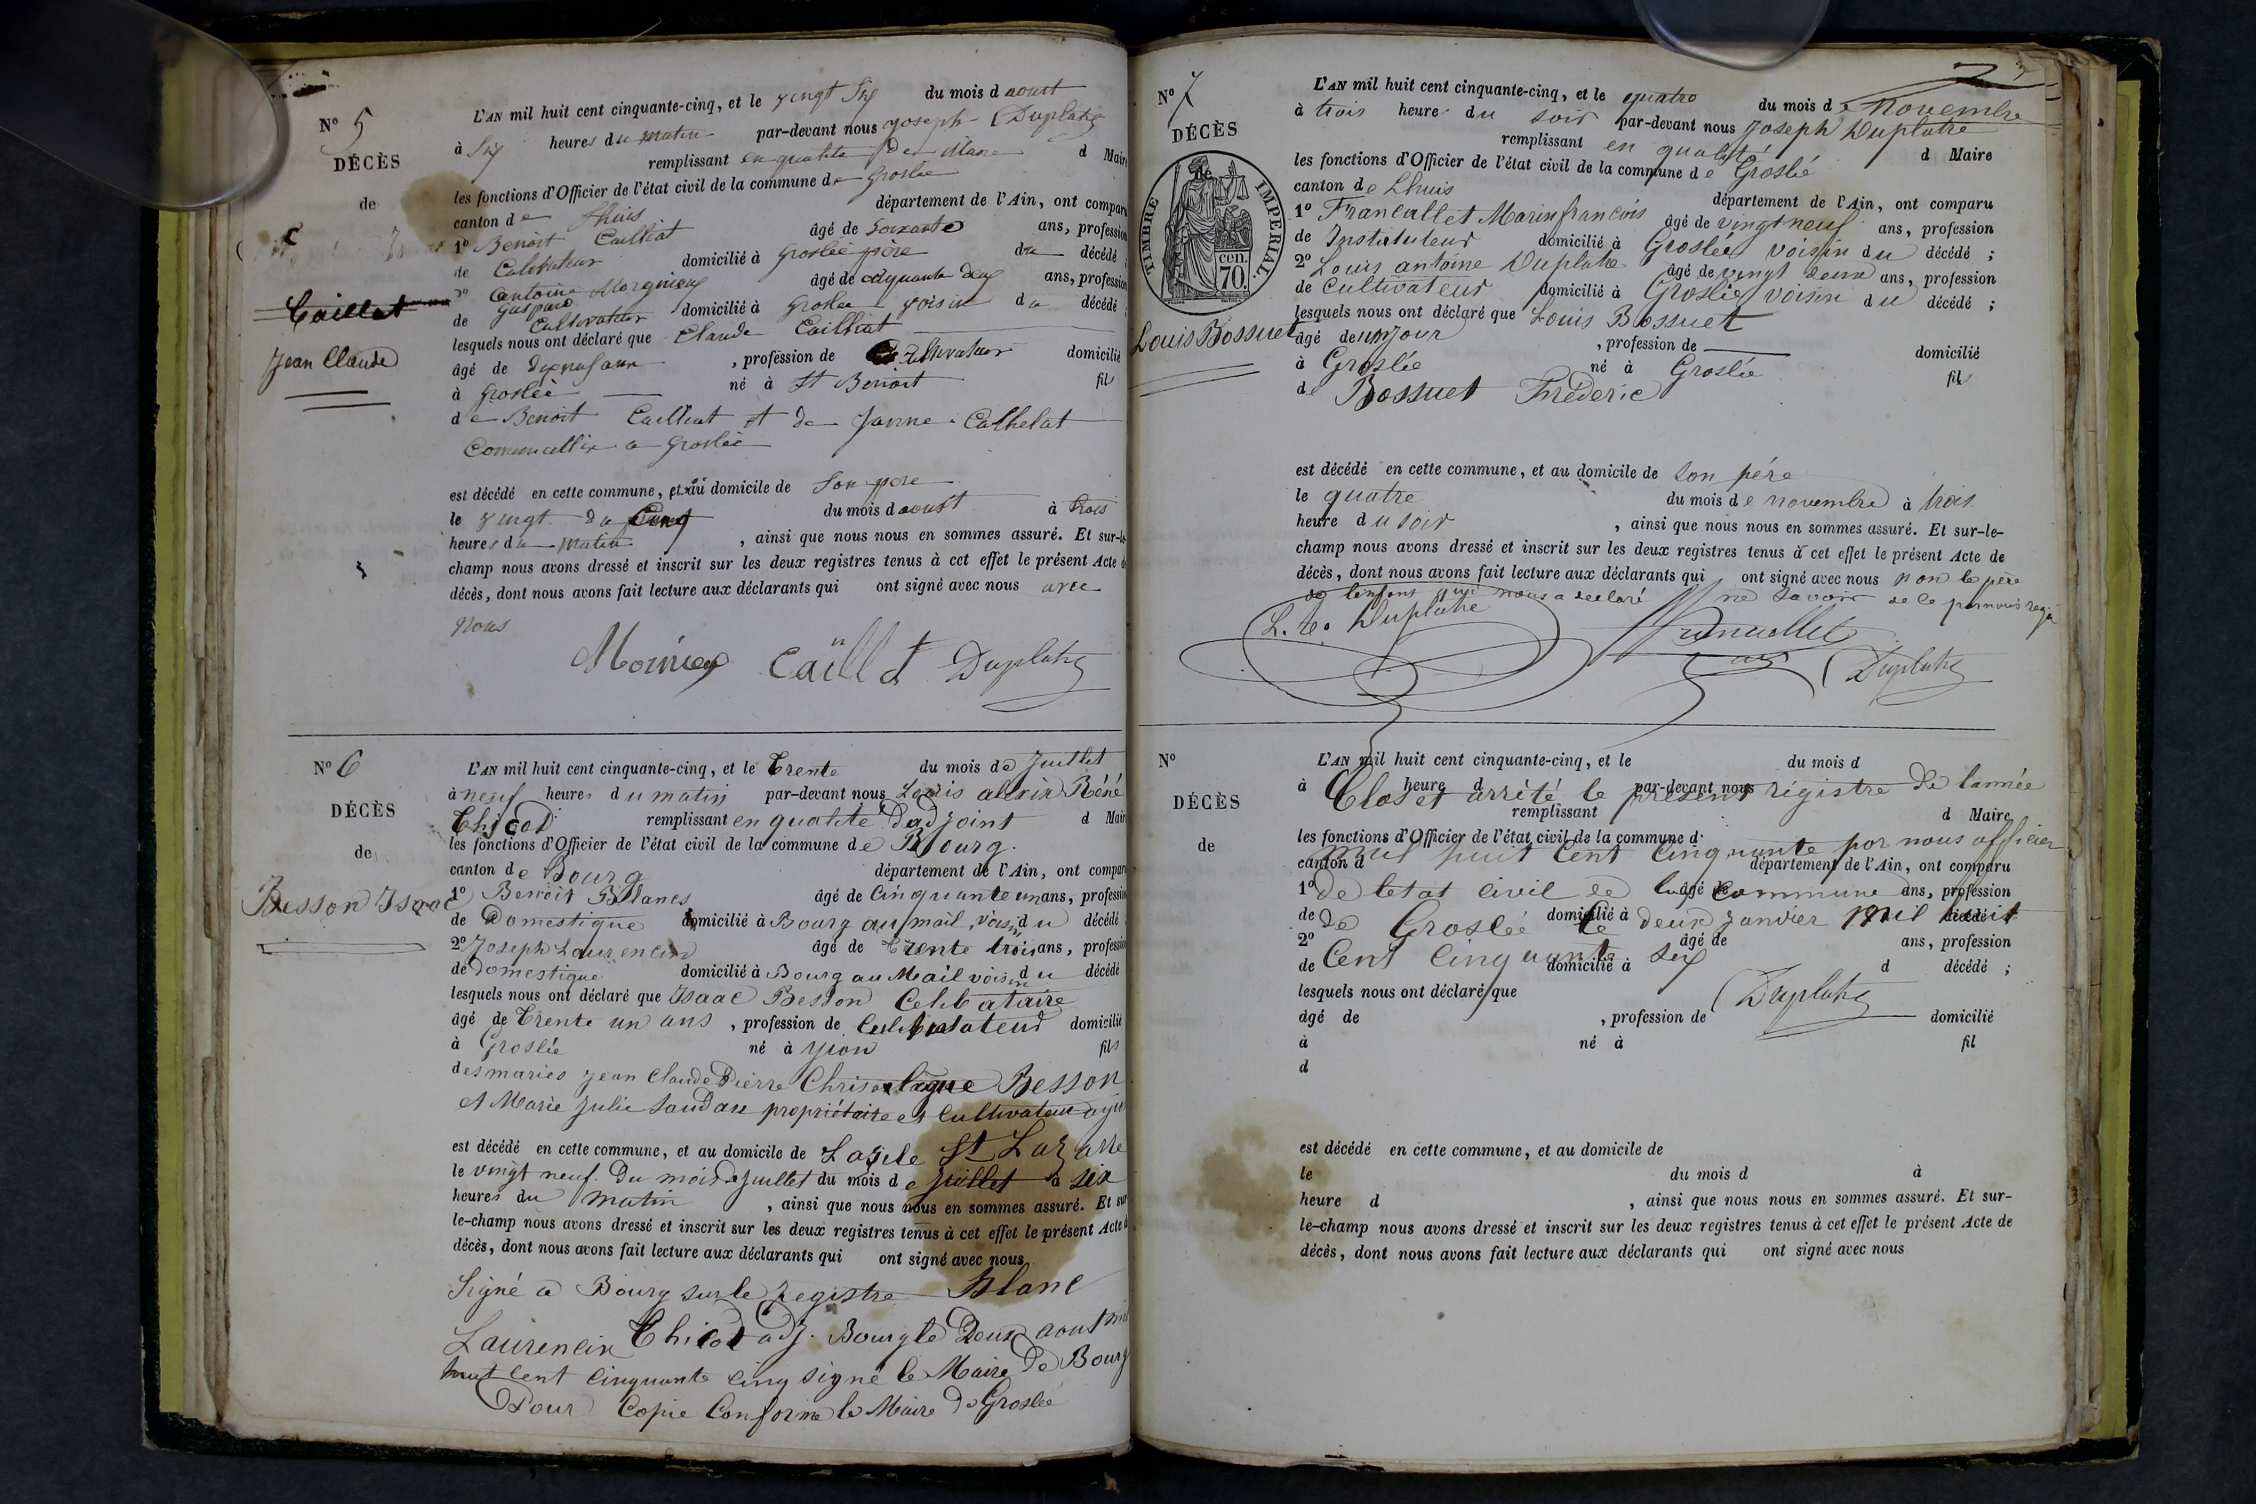 N° 5
DÉCÈS
de
Caillat
Jean Claude
L'AN mil huit cent cinquante-cinq, et le vingt Six du mois d aoust
à Six heures du matin par-devant nous joseph Duplatre
remplissant en qualité de Maire d Maire
les fonctions d'Officier de l'état civil de la commune de Groslée
canton de Lhuis département de l'Ain, ont comparu
1° Benoit Cailliat âgé de Soixante ans, profession
de Cultivateur domicilié à Groslée père du décédé ;
2° antoine âgé de cinquante deux ans, profession
de Cultivateur domicilié à Groslée voisin du décédé ;
lesquels nous ont déclaré que Claude Cailliat
âgé de , profession de Cultivateur domicilié
à Groslée né à St Benoit fils
de Benoit Cailliat et de Janne Cathelat
a Groslée
est décédé en cette commune, et au domicile de Son père
le vingt Cinq du mois d aoust à trois
heures du matin , ainsi que nous nous en sommes assuré. Et sur-le-
champ nous avons dressé et inscrit sur les deux registres tenus à cet effet le présent Acte de
décès, dont nous avons fait lecture aux déclarants qui ont signé avec nous avec
nous
Duplatre
N° 6
DÉCÈS
de
Besson Isaac
L'AN mil huit cent cinquante-cinq, et le trente du mois de Juillet
à neuf heures du matin par-devant nous Louis Réné
Chicod remplissant en qualité d'adjoint d Maire
les fonctions d'Officier de l'état civil de la commune de Bourg.
canton de Bourg département de l'Ain, ont comparu
1° Benoit Blanc âgé de Cinquante un ans, profession
de Domestique domicilié à Bourg au mail, voisin du décédé
2° Joseph Laurencin âgé de Trente trois ans, profession
de Domestique domicilié à Bourg au Mail voisin du décédé
lesquels nous ont déclaré que Isaac Besson Celibataire
âgé de Trente un ans , profession de Cultivateur domicilié
à Groslée né à Yvon fils
des mariés Jean Claude Pierre Besson
et Marie Julie propriétaire et Cultivateur
est décédé en cette commune, et au domicile de L'asile St Lazarre
le vingt neuf. Du mois de Juillet du mois de juillet à six
heures du matin , ainsi que nous nous en sommes assuré. Et sur-
le-champ nous avons dressé et inscrit sur les deux registres tenus à cet effet le présent Acte de
décès, dont nous avons fait lecture aux déclarants qui ont signé avec nous
Signé a Bourg sur le registre Blanc
Laurencin Chicod adj. Bourg le Deux aout mil
huit cent cinquante cinq signé le Maire De Bourg
Pour Copie Conforme le Maire De Groslée
N° 7
DÉCÈS
TIMBRE IMPERIAL.
70.
cen.
Louis Bossuet
L'AN mil huit cent cinquante-cinq, et le quatre du mois de Novembre
à trois heure du soir par-devant nous Joseph Duplatre
remplissant en qualité d Maire
les fonctions d'Officier de l'état civil de la commune de Groslée
canton de Lhuis département de l'Ain, ont comparu
1° Francallet Marin françois âgé de vingt neuf ans, profession
de Instituteur domicilié à Groslée voisin du décédé ;
2° Louis antoine Duplatre âgé de vingt deux ans, profession
de Cultivateur domicilié à Groslée voisin du décédé ;
lesquels nous ont déclaré que Louis Bossuet
âgé de un jour , profession de domicilié
à Groslée né à Groslée fils
de Bossuet Fréderic
est décédé en cette commune, et au domicile de son père
le quatre du mois de novembre à trois
heure du soir , ainsi que nous nous en sommes assuré. Et sur-le-
champ nous avons dressé et inscrit sur les deux registres tenus à cet effet le présent Acte de
décès, dont nous avons fait lecture aux déclarants qui ont signé avec nous non le père
de l'enfant qui nous a declaré ne savoir de ce par nous requis
L. A. Duplatre Francallet
Duplatre
N°
DÉCÈS
de
L'AN mil huit cent cinquante-cinq, et le du mois d
à heure d par-devant nous
Clos et arrété le présent régistre De l'année
remplissant d Maire
les fonctions d'Officier de l'état civil de la commune d
mil huit Cent Cinquante par nous officier
canton d département de l'Ain, ont comparu
1° âgé de ans, profession
de l'etat civil de la commune
de domicilié à décédé ;
de Groslée le deux janvier mil huit
2° âgé de ans, profession
de domicilié à d décédé ;
Cent Cinquante six
lesquels nous ont déclaré que
Duplatre
âgé de , profession de domicilié
à né à fil
d
est décédé en cette commune, et au domicile de
le du mois d à
heure d , ainsi que nous nous en sommes assuré. Et sur-
le-champ nous avons dressé et inscrit sur les deux registres tenus à cet effet le présent Acte de
décès, dont nous avons fait lecture aux déclarants qui ont signé avec nous